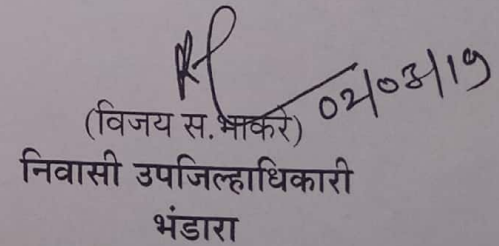 02/03/19
(विजय स.भाकरे)
निवासी उपजिल्हाधिकारी
भंडारा